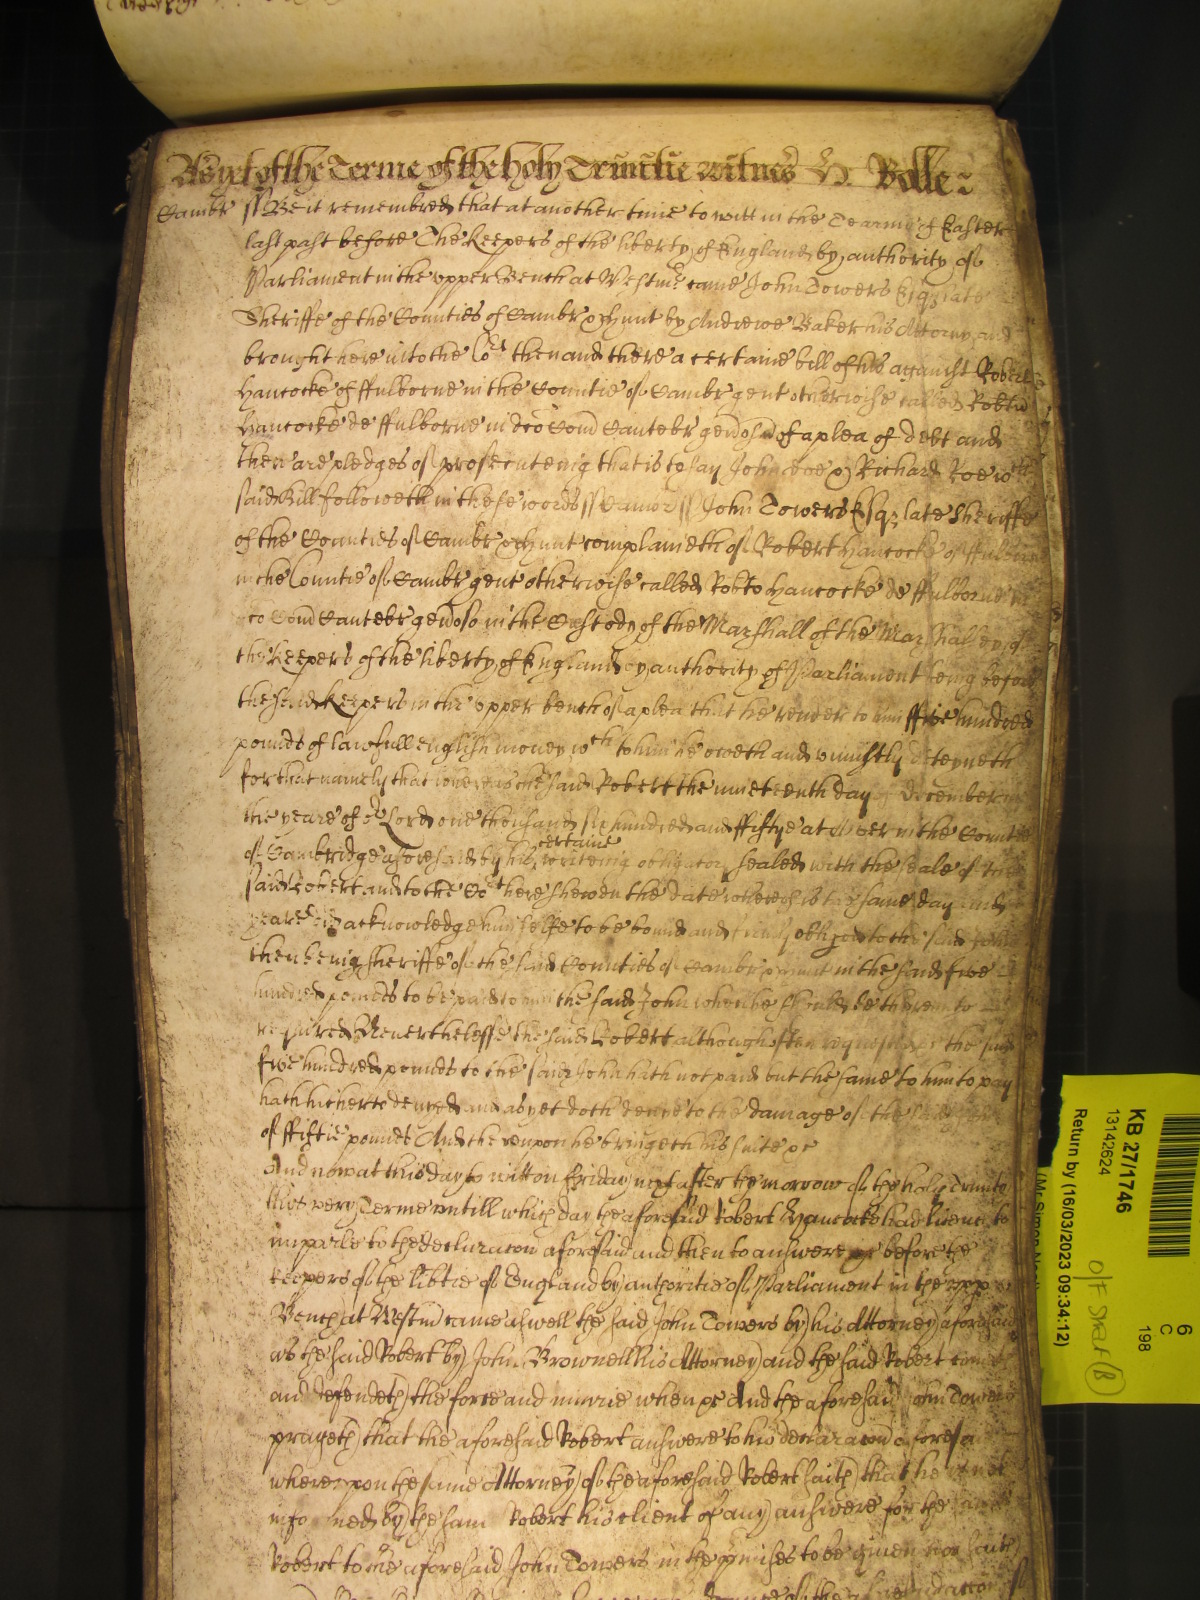 As yet of the Terme of the holy Trinitie witnes H. Rolle
Cambr ss Be it remembred that at another time to witt in the Tearme of Easter
last past before The Keepers of the liberty of England by authority of
Parliament in the upper Bench at Westmr came John Towers Esqr late
Sheriffe of the Counties of Cambr & Hunt by Andrewe Baker his Attorny and
brought here into the Cort then and there a certaine bill of his against Robert
Hancocke of ffulborne in the Countie of Cambr gent otherwise called Robtu
Hancocke de ffulborne in dco Com Cantebr genosu of a plea of debt and
there are pledges of prosecuteing that is to say John Doe & Richard Roe wch
said Bill followeth in these words ss Cambr ss John Towers Esqr late Sheriffe
of the Counties of Cambr & Hunt complaineth of Robert Hancocke of ffulborne
in the Countie of Cambr gent otherwise called Robto Hancocke de ffulborne in
dco Com Cantebr genoso in the Custody of the Marshall of the Marshalley of
the Keepers of the liberty of England by authority of Parliament being before
the said Keepers in the upper bench of a plea that he render to him ffive hundred
pounds of lawfull english money wch to him he oweth and uniustly deteyneth
for that namely that whereas the said Robert the nineteenth day of December in
the yeare of or Lord one thousand six hundred and ffiftye at in the Countie
of Cambridge aforesaid by his certaine writeing obligatory sealed with the seale of the
said Robert and to the Cort here shewen the date whereof is the same day and
yeare did acknowledge himselfe to be bound and firmly obliged to the said John
then being Sheriffe of the said Counties of Cambr & Hunt in the said five
hundred pounds to be paid to him the said John when he should be thereunto
required Neverthelesse the said Robert although often requested the said
five hundred pounds to the said John hath not paid but the same to him to pay
hath hitherto denyed and as yet doth denye to the damage of the
of ffiftie pounds And thereupon he bringeth his suite &c
And now at this day to witt on Friday next after the morrow of the holy Trinitie
this very Terme untill which day the aforesaid Robert Hancocke had licence to
imparle to the declaracon aforesaid and then to answere &c before the
keepers of the libtie of England by authoritie of Parliament in the upper
Bench at Westm came aswell the said John Towers by his Attorney aforesaid
as the said Robert by John Brownell his Attorney and the said Robert cometh
and defendeth the force and iniurie when &c And the aforesaid John Towers
prayeth that the aforesaid Robert answere to his declaracon aforesaid
whereupon the same Attorney of the aforesaid Robert saith that he is not
informed by the said Robert his client of any answere for the same
Robert to the aforesaid John Towers in the pmises to be given nor saith
KB 27/1746
13142624
Return by (16/03/2023 09:34:12)
6
C
198
O/F SHELF (B)